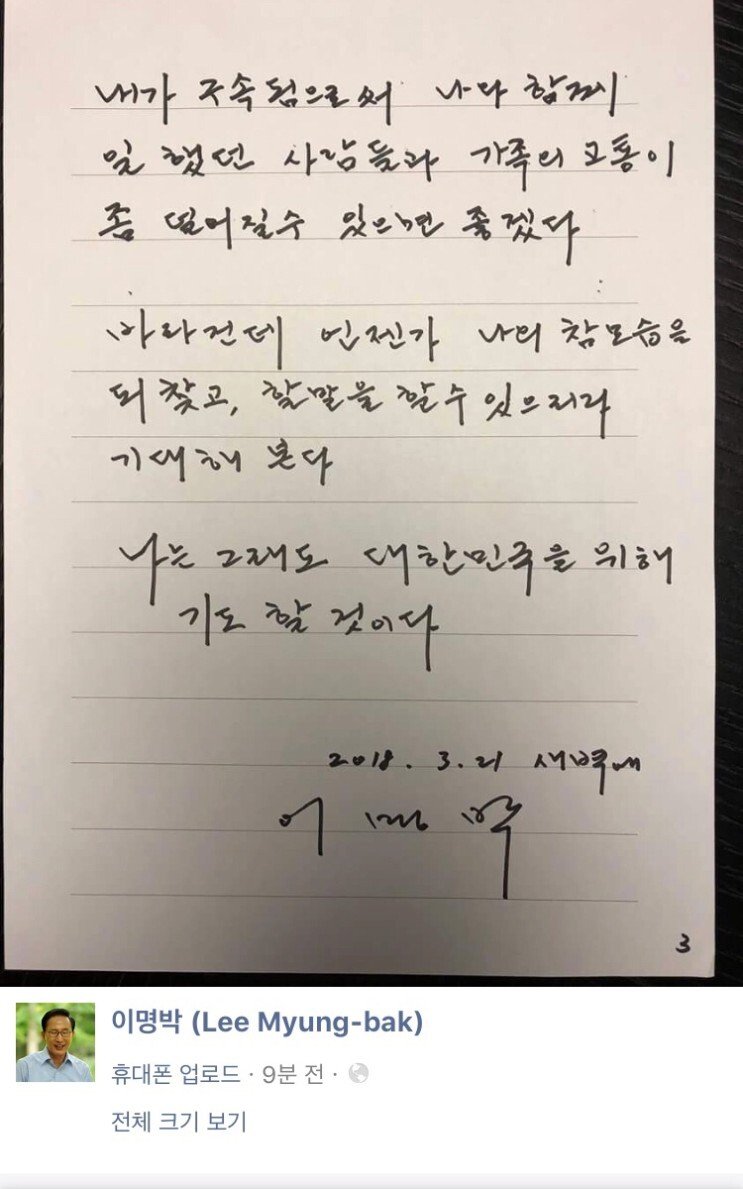 내가 구속됨으로써 나와 함께
일 했던 사람들과 가족의 고통이
좀 덜어질수 있으면 좋겠다
바라건데 언젠가 나의 참모습을
되찾고, 할말을 할 수 있으리라
기대해 본다
나는 그래도 대한민국을 위해
기도 할 것이다
2018. 3. 21 새벽에
이명박
3
이명박 (Lee Myung-bak)
휴대폰 업로드 · 9분 전 ·
전체 크기 보기